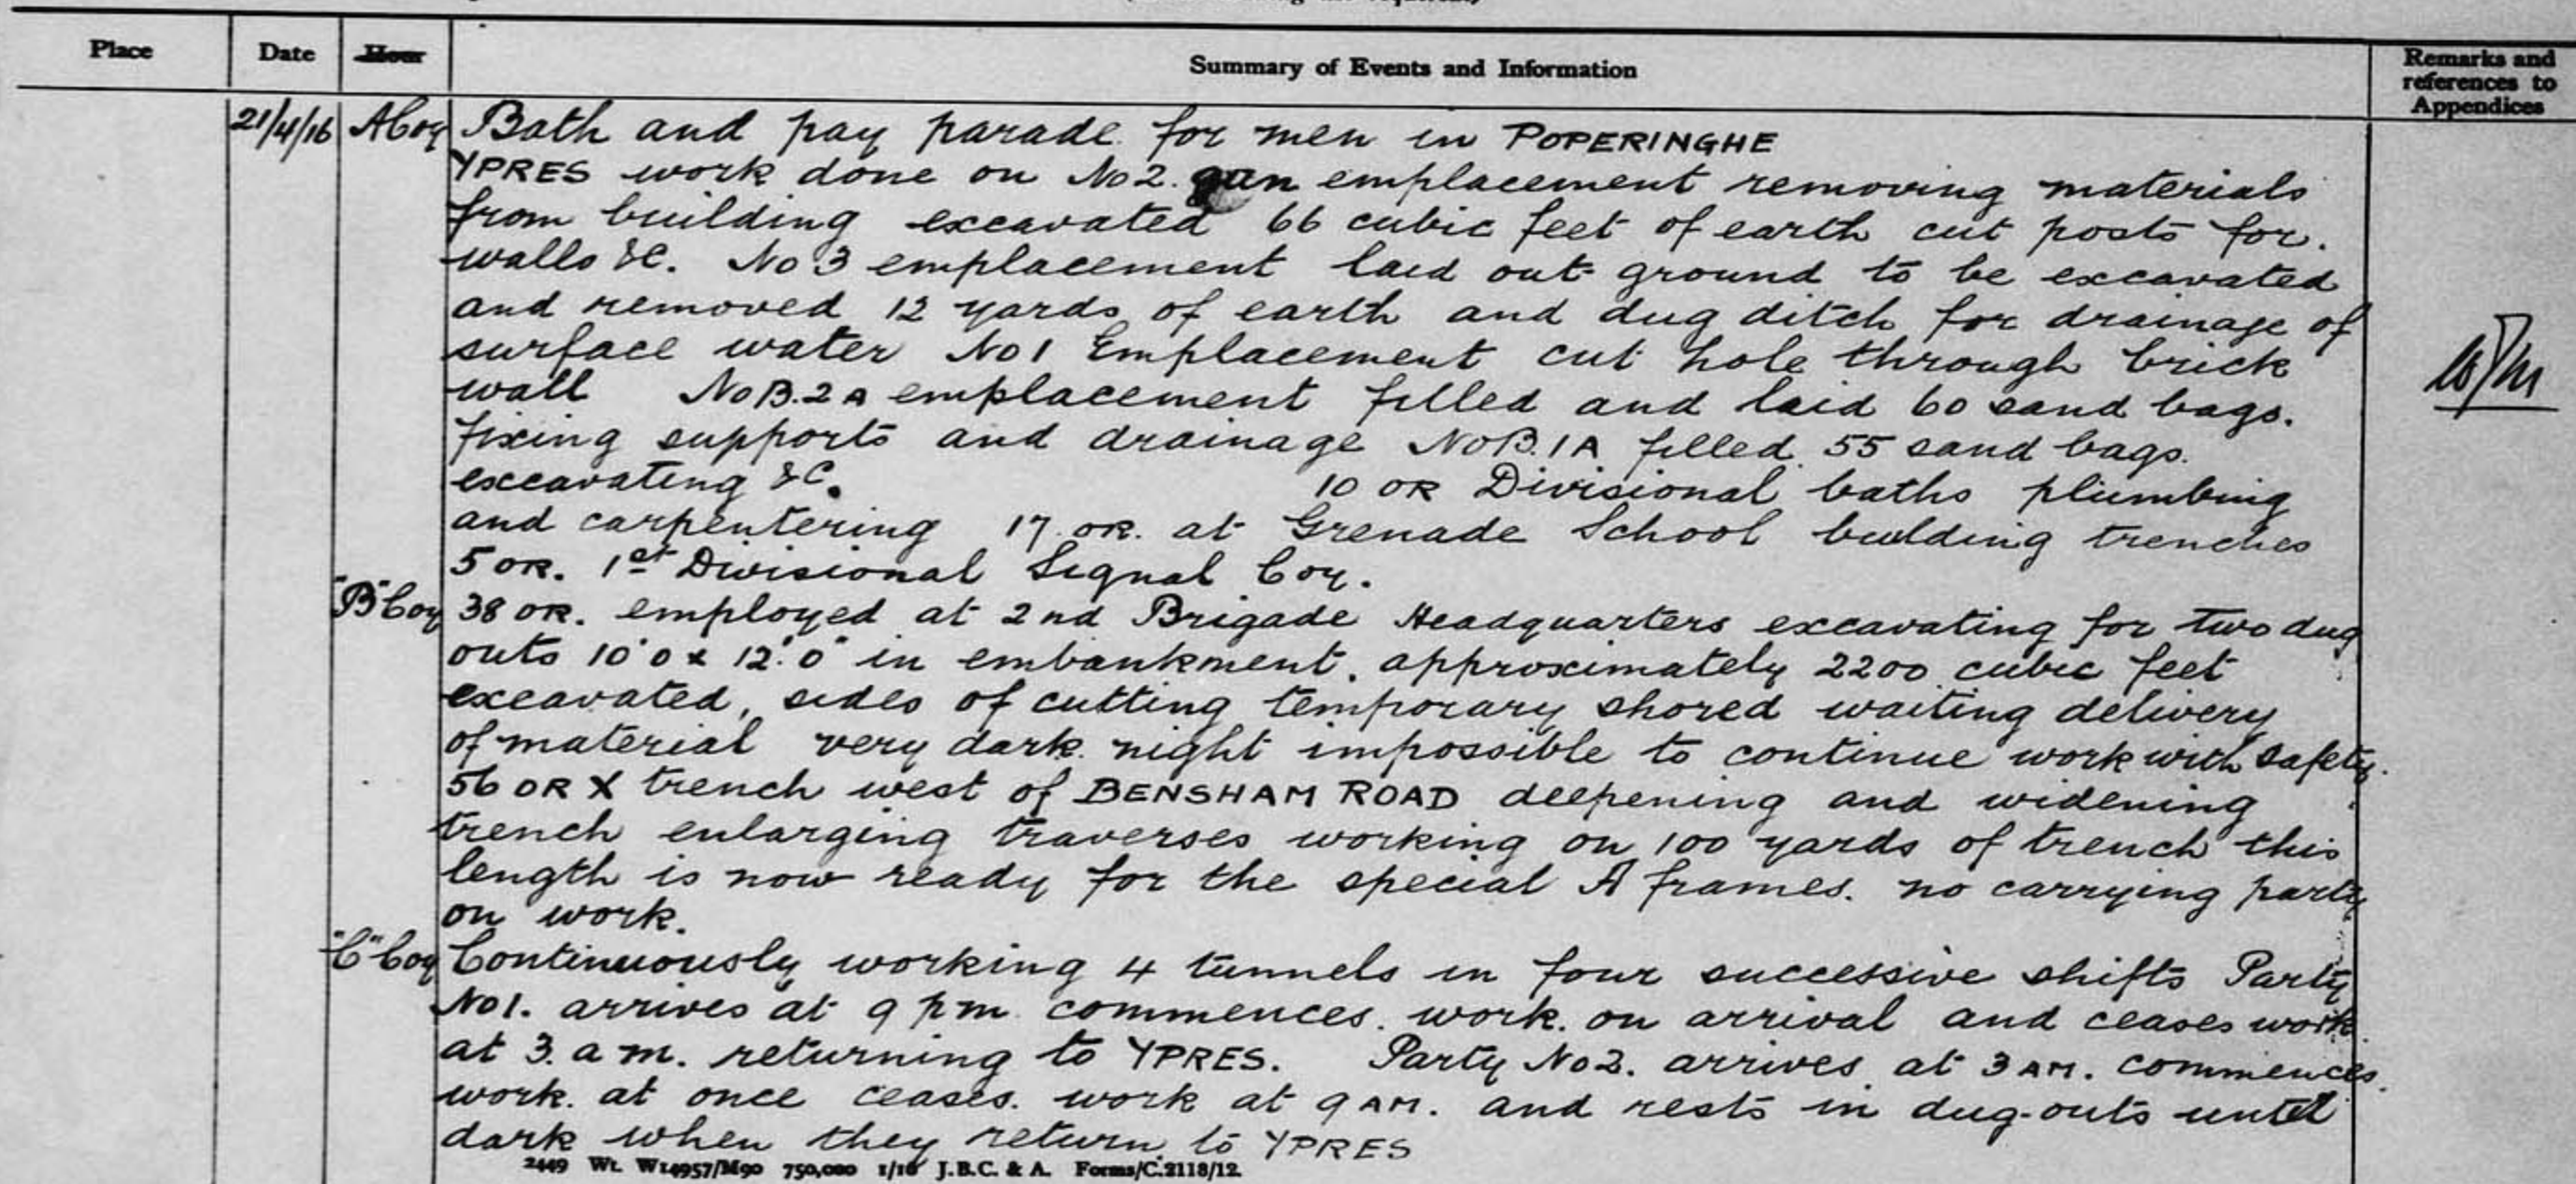 Place Date Hour Summary of Events and Information Remarks and references to Appendices
21/4/16 A Coy Bath and pay parade for men in POPERINGHE
YPRES work done on No 2. gun emplacement removing materials
from building excavated 66 cubic feet of earth cut posts for.
walls &c. No 3 emplacement laid out ground to be excavated
and removed 12 yards of earth and dug ditch for drainage of
surface water No 1 Emplacement cut hole through brick
wall No B.2A emplacement filled and laid 60 sand bags.
fixing supports and drainage No B.1A filled 55 sand bags.
excavating &c. 10 OR Divisional baths plumbing
and carpentering 17 OR. at Grenade School building trenches
5 OR. 1st Divisional Signal Coy.
"B" Coy 38 OR. employed at 2nd Brigade Headquarters excavating for two dug
outs 10'0 x 12'.0" in embankment. approximately 2200 cubic feet
excavated, sides of cutting temporary shored waiting delivery
of material very dark night impossible to continue work with safety.
56 OR X trench west of BENSHAM ROAD deepening and widening
trench enlarging traverses working on 100 yards of trench this
length is now ready for the special A frames. no carrying party
on work.
"C" Coy Continuously working 4 tunnels in four successive shifts Party
No 1. arrives at 9 pm commences work on arrival and ceases work
at 3. a.m. returning to YPRES. Party No 2. arrives at 3 AM. commences
work at once ceases work at 9 AM. and rests in dug-outs until
dark when they return to YPRES
2449 Wt. W14957/M90 750,000 1/16 J.B.C. & A. Forms/C.2118/12.